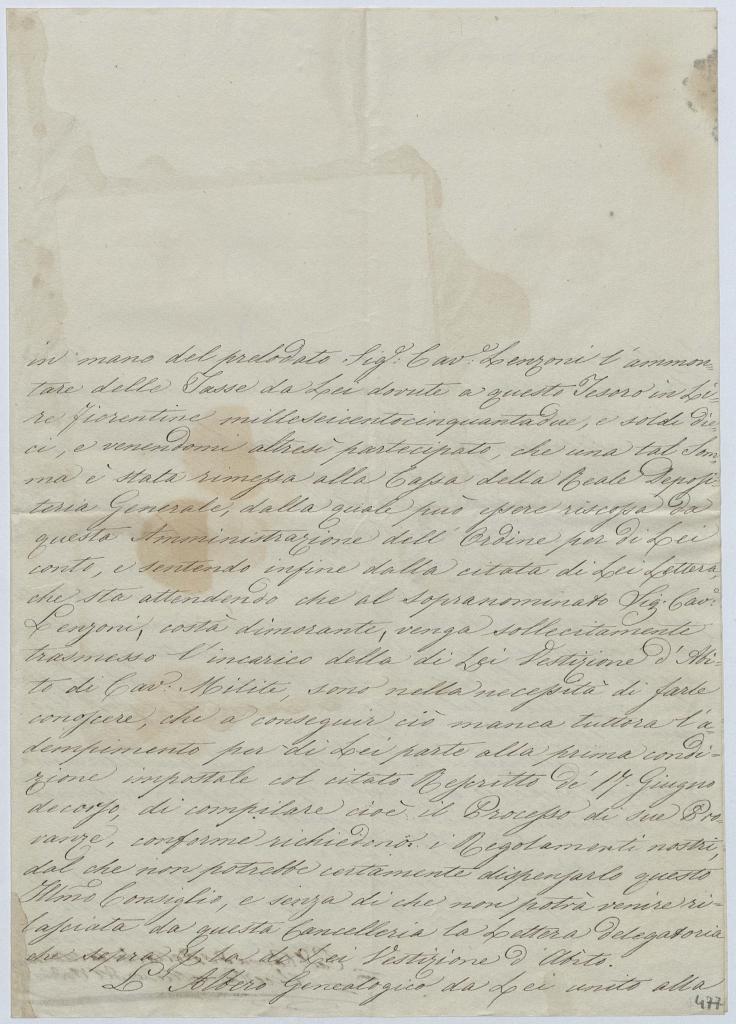 in mano del prelodato Sig.r Cav.e Lenzoni l'ammon=
tare delle Tasse da Lei dovute a questo Tesoro in Li=
re fiorentine milleseicentocinquantadue, e soldi die=
ci, e venendomi altresì partecipato, che una tal Som=
ma è stata rimessa alla Cassa della Reale Deposi=
teria Generale, dalla quale può essere riscossa da
questa Amministrazione dell'Ordine per di Lei
conto, e sentendo infine dalla citata di Lei Lettera,
che sta attendendo che al sopranominato Sig. Cav.e
Lenzoni, costà dimorante, venga sollecitamente
trasmesso l'incarico della di Lei Vestizione d'Abi=
to di Cav.e Milite, sono nella necessità di farle
conoscere, che a conseguir ciò manca tuttora l'a=
dempimento per di Lei parte alla prima condi=
zione impostale col citato Rescritto de' 17. Giugno
decorso, di compilare cioè il Processo di sue Pro=
vanze, conforme richiedono i Regolamenti nostri,
dal che non potrebbe certamente dispensarlo questo
Illmo Consiglio, e senza di che non potrà venire ri=
lasciata da questa Cancelleria la Lettera delegatoria
che sopra la di Lei Vestizione d'Abito.
L'Albero Genealogico da Lei unito alla
477